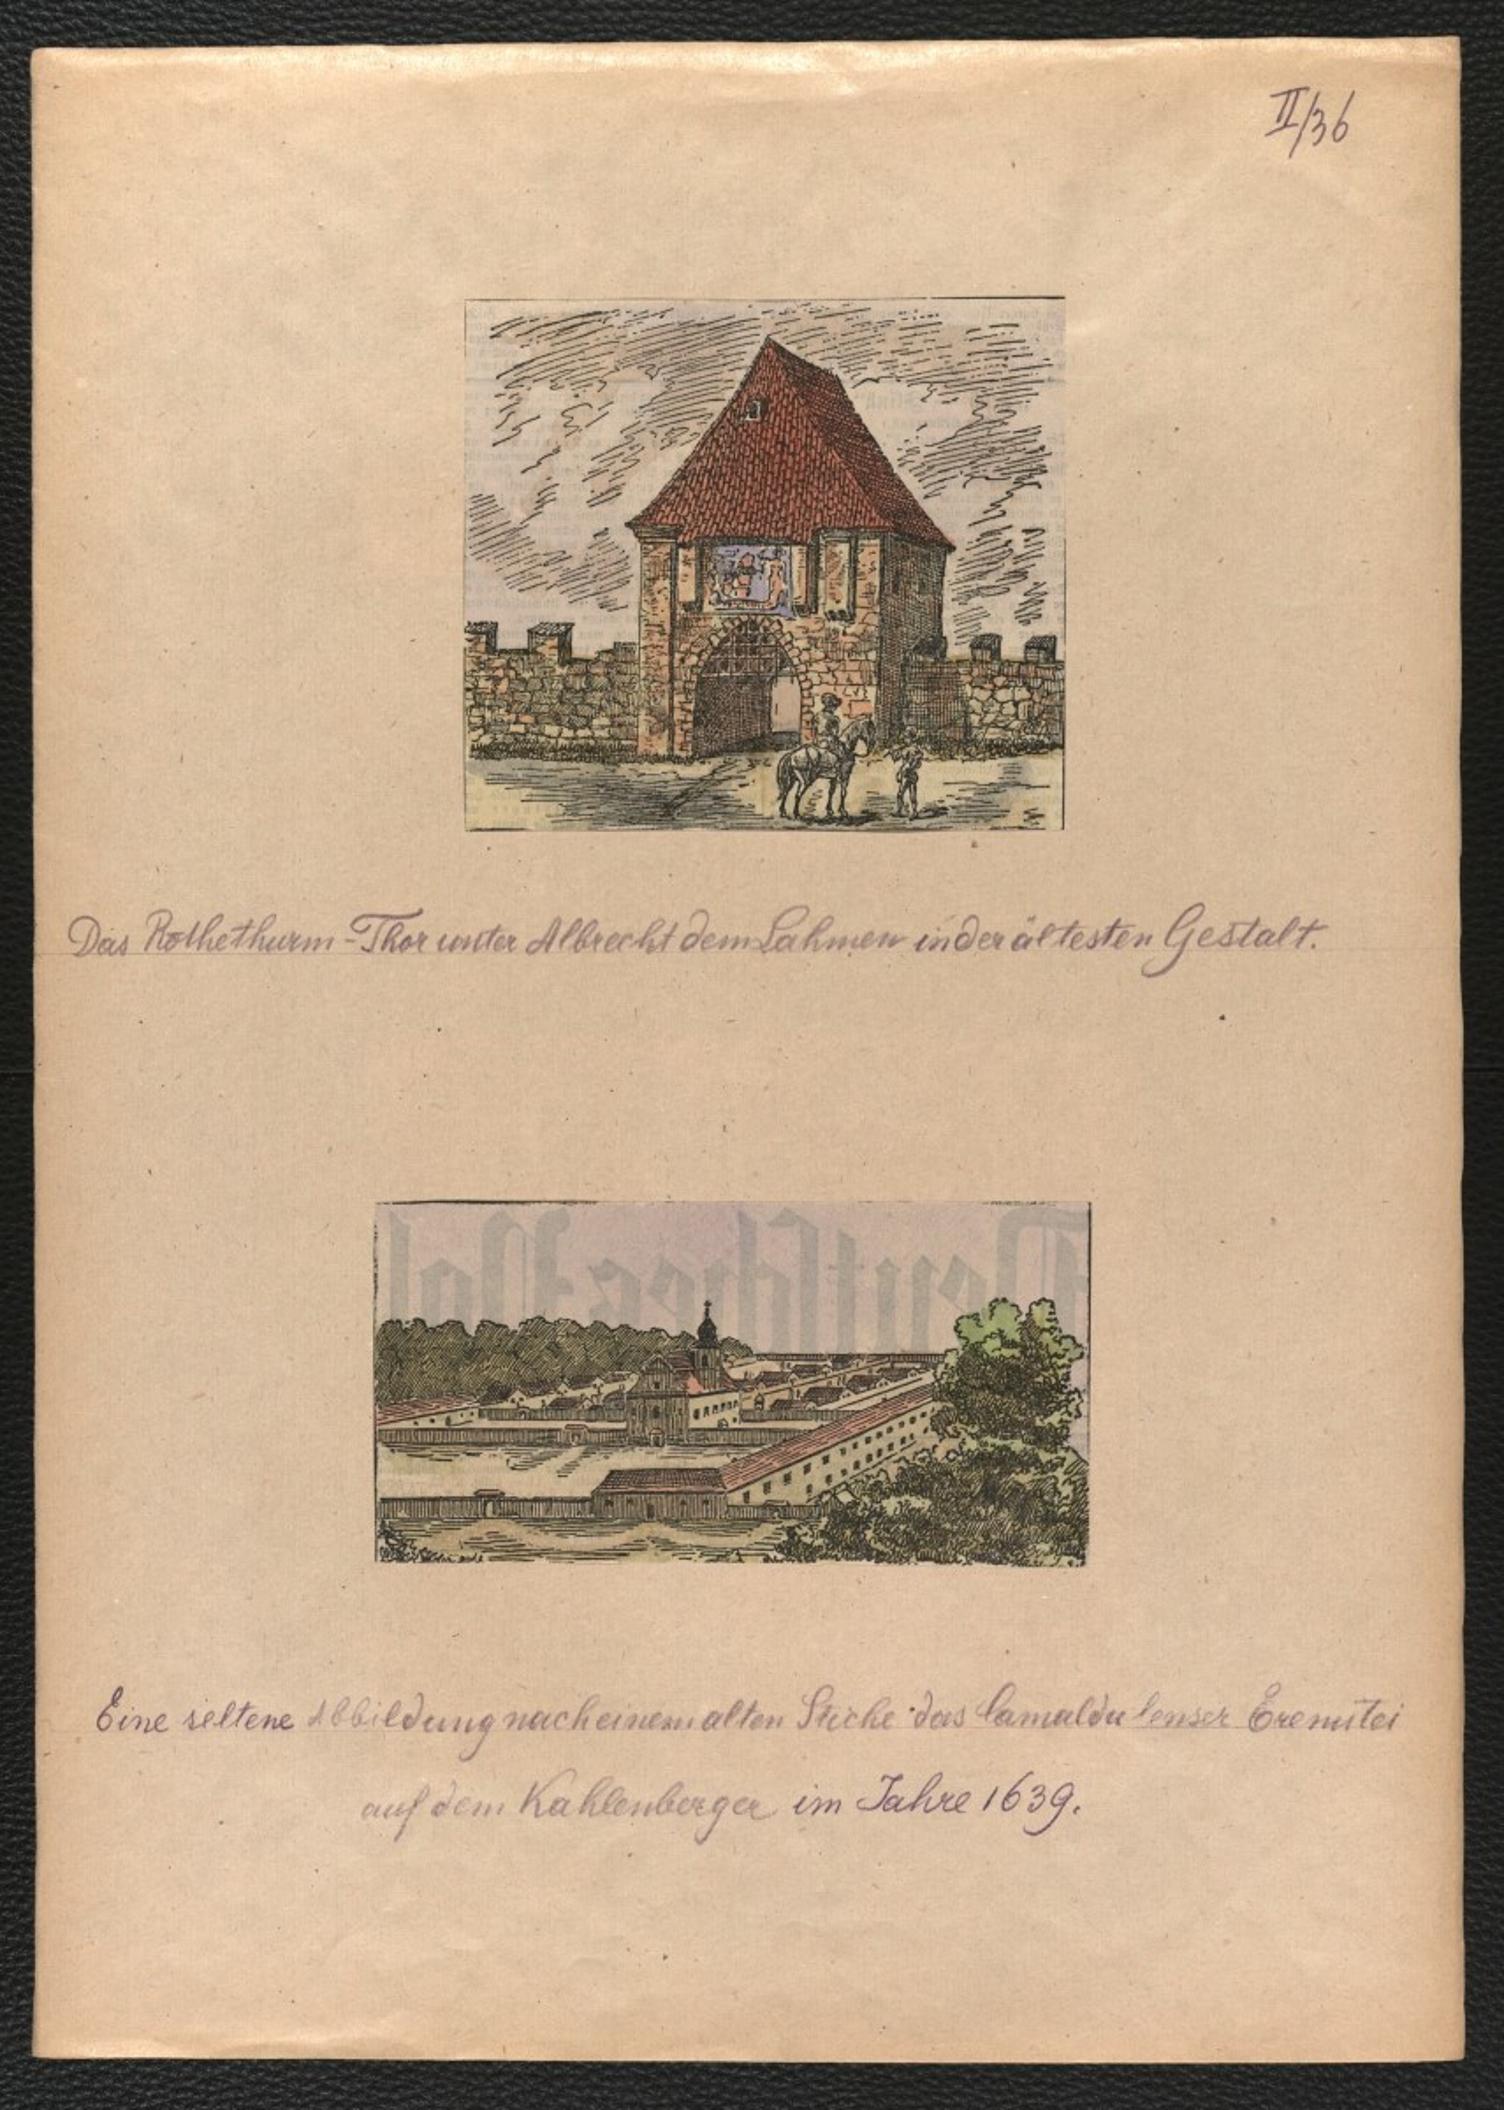 II/36
Das Rothethurm-Thor unter Albrecht dem Lahmen in der ältesten Gestalt.
Deutsches Vol
Eine seltene Abbildung nach einem alten Stiche das Camaldulenser Eremitei
auf dem Kahlenberger im Jahre 1639.